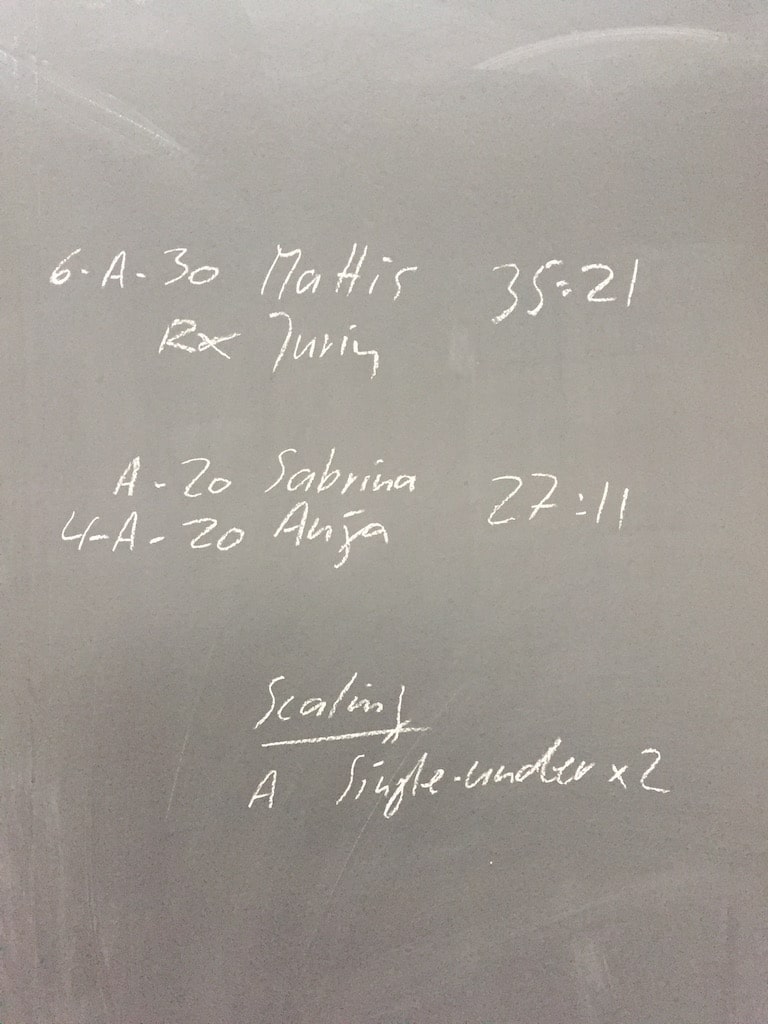 6-A-30 Mattis 35:21
Rx Jurin
A-20 Sabrina 27:11
4-A-20 Anja
Scaling
A Single-under x2